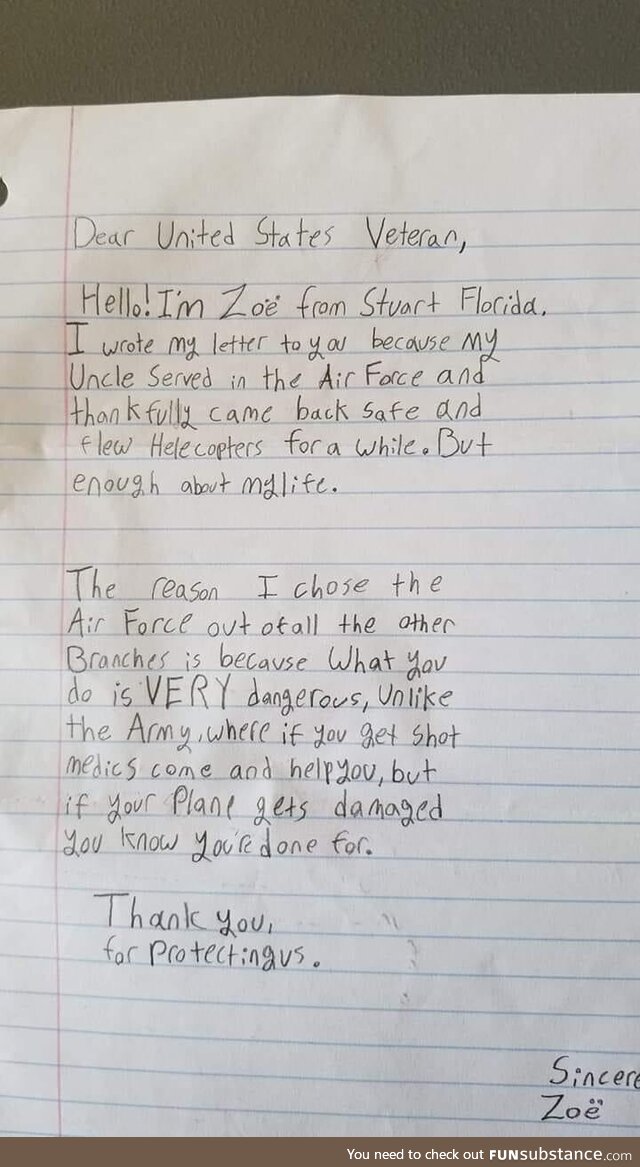 Dear United States Veteran,
Hello! I'm Zoë from Stuart Florida.
I wrote my letter to you because my
Uncle Served in the Air Force and
thankfully came back safe and
flew Helecopters for a while. But
enough about my life.
The reason I chose the
Air Force out of all the other
Branches is because What you
do is VERY dangerous, Unlike
the Army, where if you get shot
medics come and help you, but
if your Plane gets damaged
you know you're done for.
Thank you,
for Protecting us.
Sincere
Zoë
You need to check out FUNsubstance.com